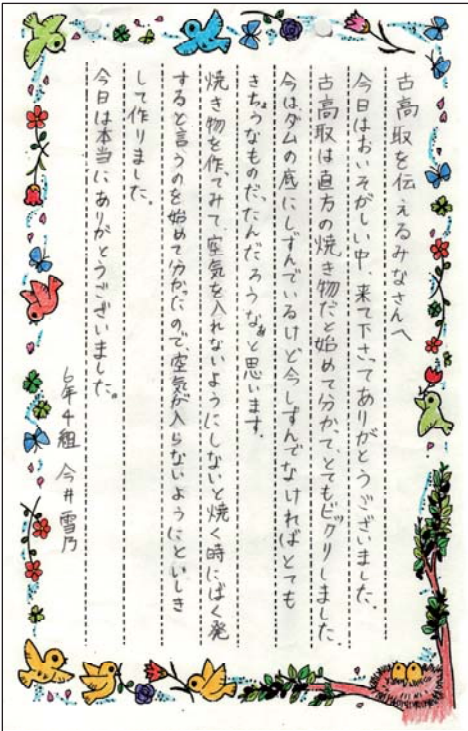 古高取を伝えるみなさんへ
今日はおいそがしい中、来て下さってありがとうございました。
古高取は直方の焼き物だと始めて分かって、とてもビックリしました。
今はダムの底にしずんでいるけど今しずんでなければとても
きちょうなものだったんだろうなぁと思います。
焼き物を作ってみて、空気を入れないようにしないと焼く時にばく発
すると言うのを始めて分かったので、空気が入らないようにといしき
して作りました。
今日は本当にありがとうございました。
6年4組 今井雪乃